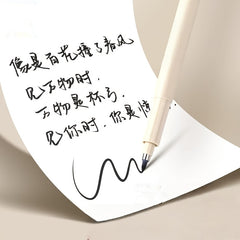 像是百花撞了春风
见万物时，
万物是你
见你时，你是